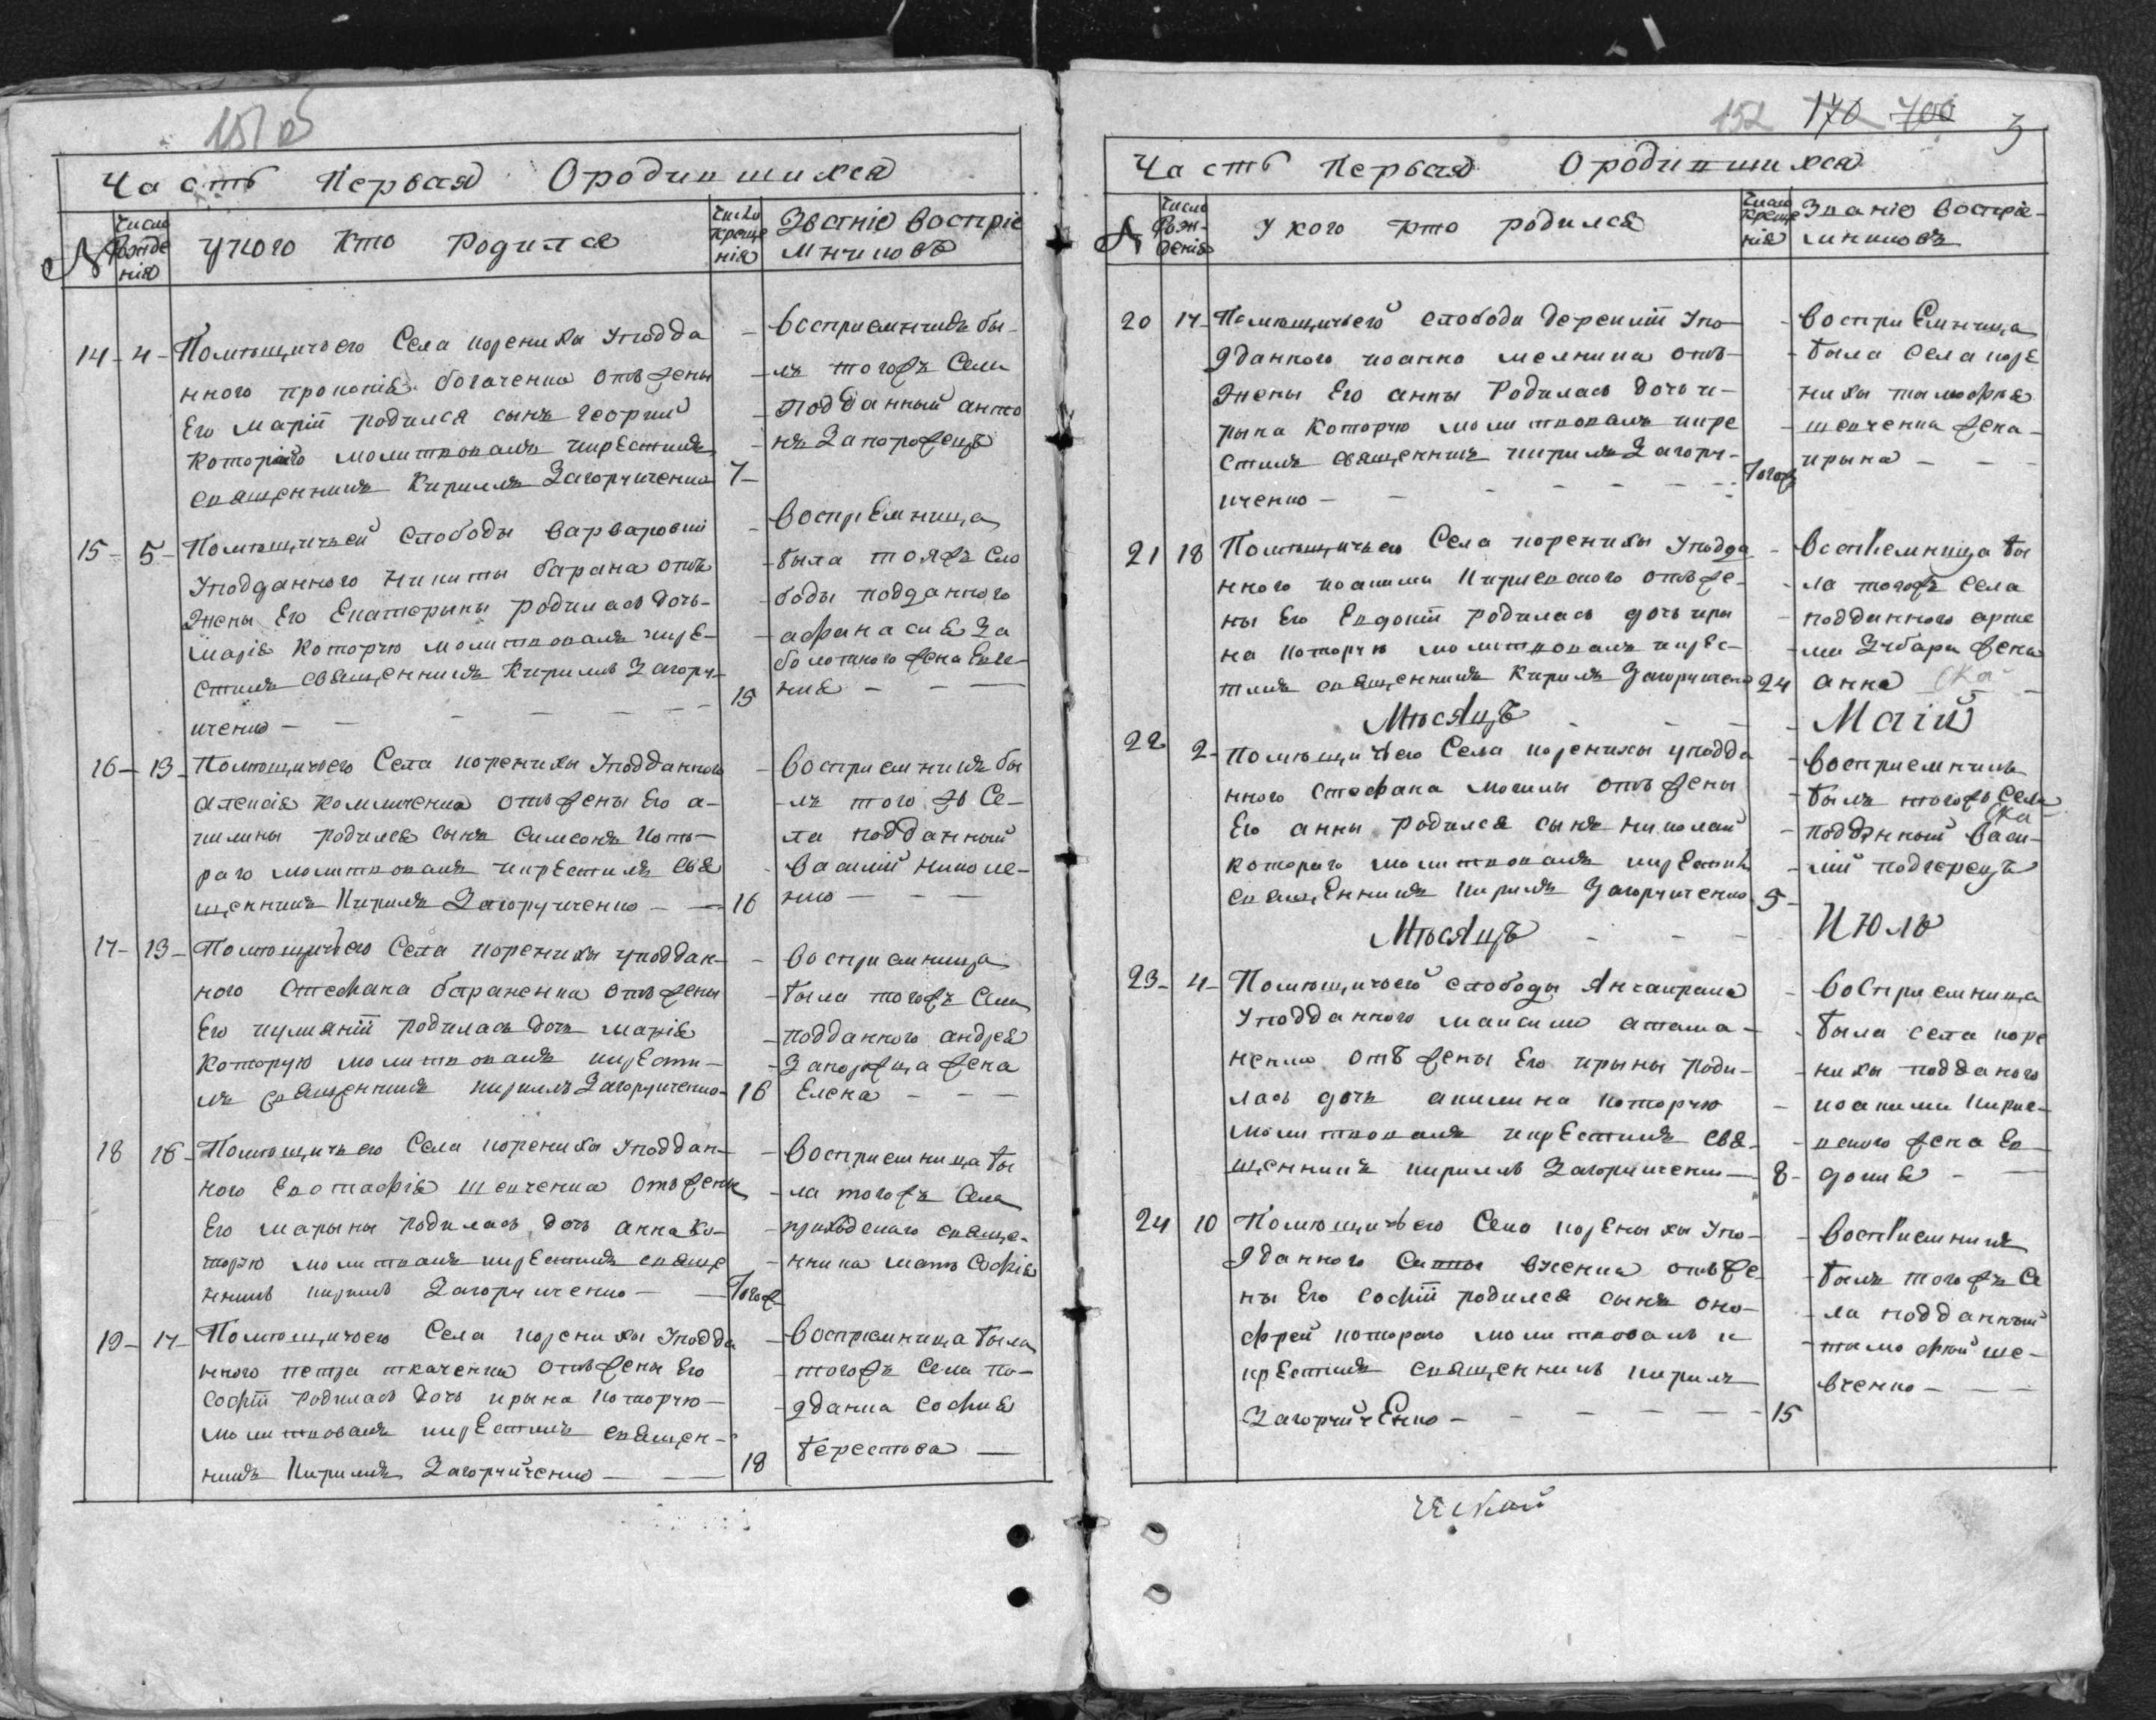 151 об
Часть Первая Ородившихся
№
Число Рожденія
укого Кто Родился
Число Крещенія
Званіе воспріемниковъ
14 - 4 - Помющичьего Села кореники Уподда
нного прокопія богаченка отъ жены
Его Маріи родился сынъ георгий
которого молитвовалъ икрестилъ
священникъ Кириллъ Загорученко 7 -
восприемникъ бы
лъ тогожъ Села
подданный анто
нъ Запорожецъ
15 - 5 - Помющичьей слободы варваровки
Уподданного никиты барана отъ
жены Его Екатерины родилась дочь
марія которую молитвовалъ икре
стилъ священникъ Кирилъ Загору
ченко 15
воспрЕмница
была тояжъ сло
боды подданного
афанасия За
болотного жена Евге
ния
16 - 13 - Помющичьего Села коренихи Уподданного
алексія отъ жены Его а-
килины родился сынъ Симеонъ кото
раго молитвовалъ икрестилъ свя
щенникъ Кирилъ Загорученко 16
восприемникъ бы
лъ того жъ Се-
ла подданный
василий николе-
нко
17 - 13 - Помющичьего Села коренихи уподдан-
ного Стефана бараненка отъ жены
Его иулианіи родилась дочь марія
Которую молитвовалъ икрести-
лъ священникъ кириллъ Загорученко 16
восприемница
была тогожъ Села
подданного андрея
Запорожца жена
Елена
18 16 - Помющичьего Села коренихи Уподдан-
ного Евстафія шевченка отъ жены
Его марыны родилась дочь анна Ко-
торую молитвовалъ икрестилъ свяще
нникъ кирилъ Загорученко - Тогож
восприемница бы
ла тогожъ Села
приходского свяще-
нника мать Софія
19 - 17 - Помющичьего Села коренихи Уподда
нного петра ткаченка отъ жены Его
Софіи родилась дочь ирына которую
молитвовалъ икрестилъ священ-
никъ Кирилъ Загорученко 18
воспремница была
тогожъ Села по-
дданка София
берестова
152 170 700 3
Часть Первая Ородившихся
№
Число Рожденія
У кого кто родился
Число Крещенія
Званіе воспріемниковъ
20 17 - Помющичьей слободи Упо
дданного иоанна мелника отъ
жены Его анны Родилась дочь и-
рына которую молитвовалъ икре
стилъ священникъ кирилъ Загору-
ченко - Тогож
восприЕмница
была села коре
нихи тимофия
шевченка жена
ирына
21 18 Помющичьего Села коренихи Уподда
нного иоакима Кириевского отъ же-
ны Его Евдокіи родилась дочь ири
на которую молитвовалъ икрес-
тилъ священникъ Кирилъ Загорученко 24
воспiемница бы
ла тогожъ села
подданного арте
ма Зубара жена
анна
Мѣсяцъ Маіи
22 2 - помющичьего Села коренихи уподда
нного Стефана могилы отъ жены
Его анны родился сынъ николай
которого молитвовалъ икрестилъ
священникъ Кирилъ Загорученко 5 -
восприемникъ
былъ тогожъ Села
подданный васи-
лий подгерецъ
Мѣсяцъ Июль
23 - 4 - Помющичьей слободы
Уподданного максима атама-
ненка отъ жены Его ирыны роди-
лась дочь акилина которую
молитвовалъ икрестилъ свя-
щенникъ кириллъ Загорученко 8 -
восприемница
была села коре
нихи подданого
иоакима Кирие-
вского жена Ев
докия
24 10 Помющичьего Села корЕнихи Упо-
дданного отъ же
ны Его Софіи родился сынъ оно-
фрей которого молитвовалъ и
крестилъ священникъ Кирилъ
ЗагоручЕнко 15
воспiемникъ
былъ тогожъ Се
ла подданный
тимофий ше-
вченко
ческой